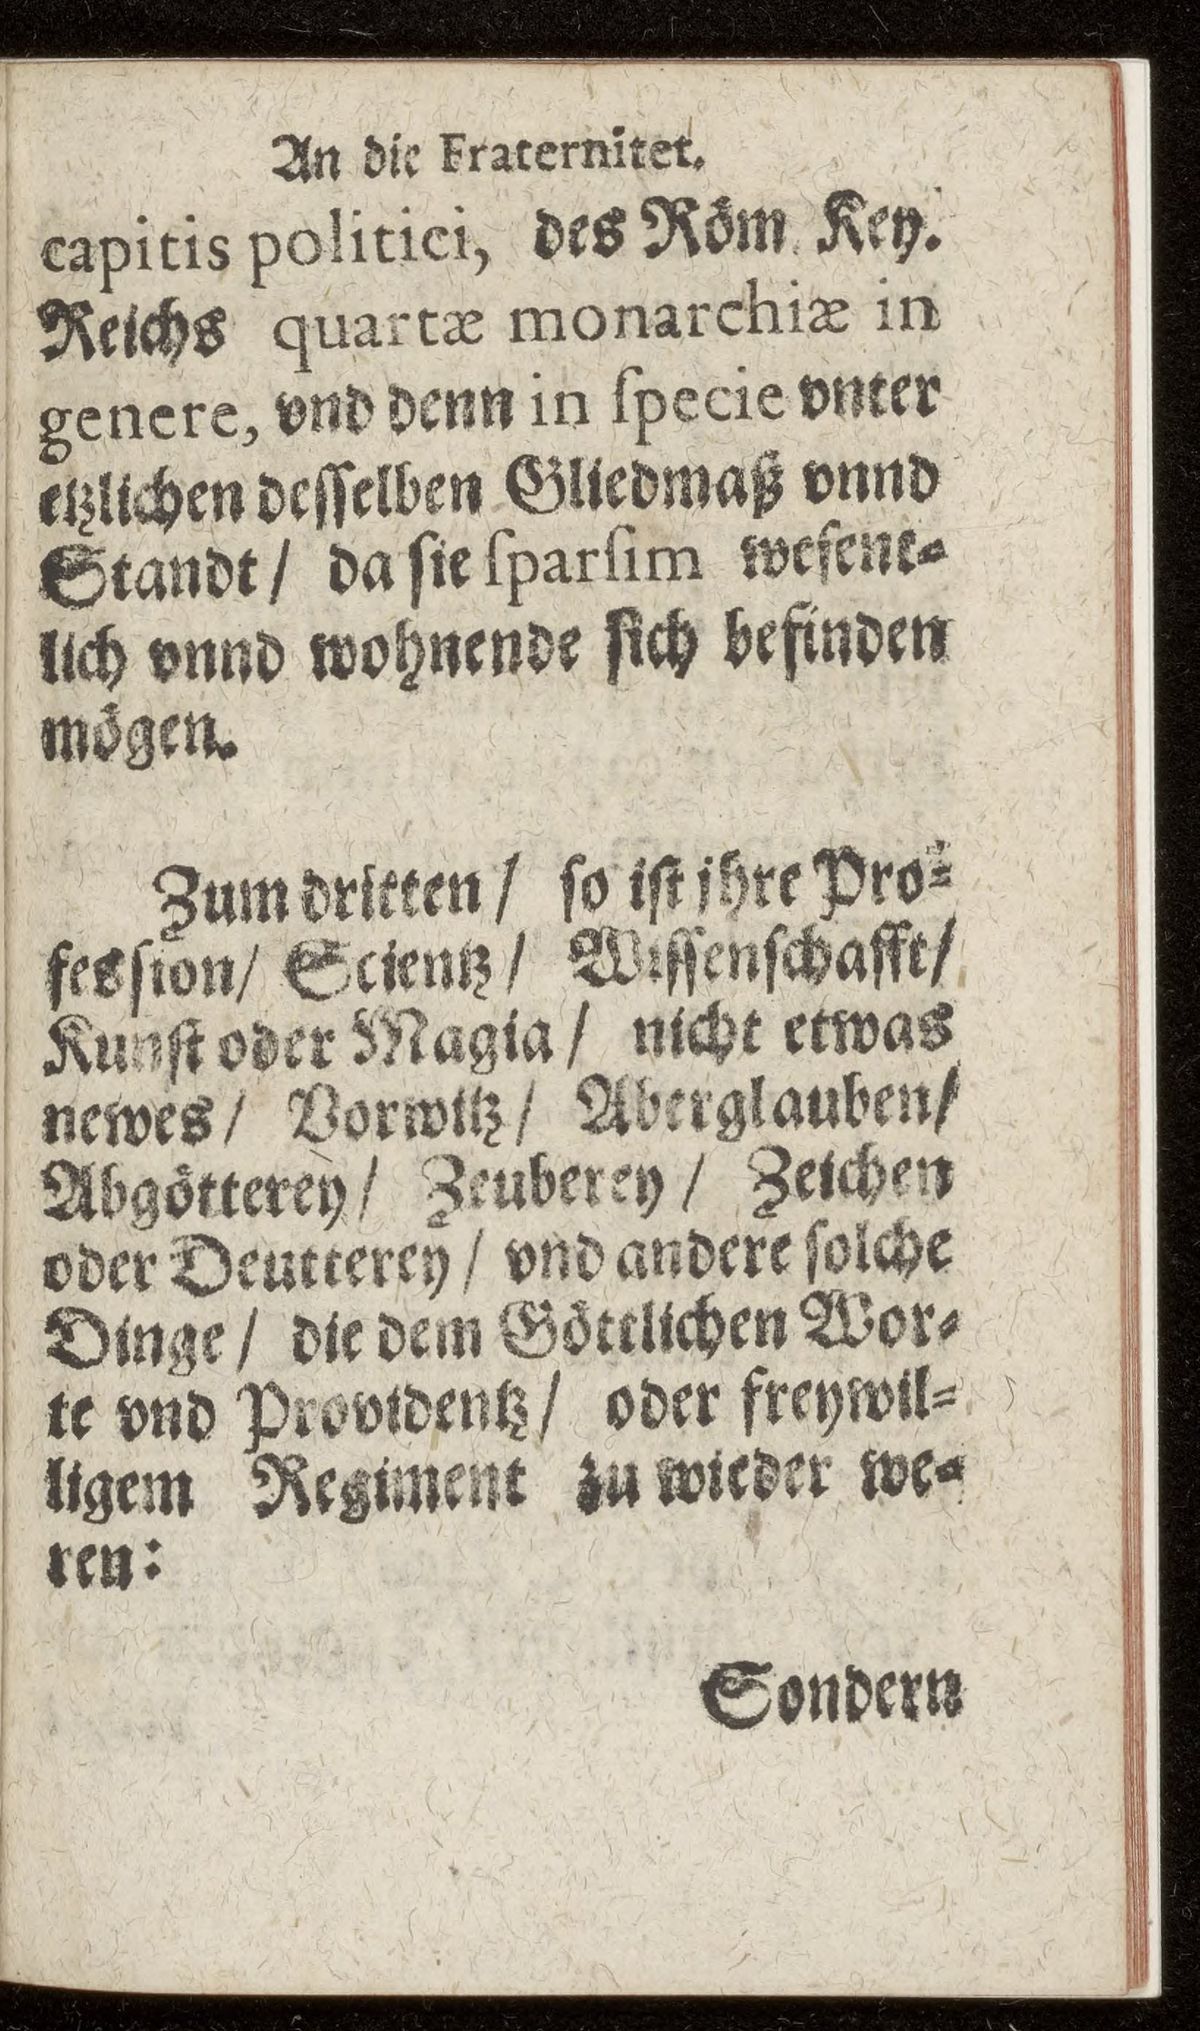 An die Fraternitet.
capitis politici, des Röm. Key.
Reichs quartæ monarchiæ in
genere, vnd denn in ſpecie vnter
etzlichen deſſelben Gliedmaß vnnd
Standt / da ſie ſparſim weſent⸗
lich vnnd wohnende ſich befinden
mögen.
Zum dritten / ſo iſt jhre Pro⸗
fesſion / Scientz / Wiſſenſchafft /
Kunſt oder Magia / nicht etwas
newes / Vorwitz / Aberglauben /
Abgötterey / Zeuberey / Zeichen
oder Deutterey / vnd andere ſolche
Dinge / die dem Göttlichen Wor⸗
te vnd Providentz / oder freywil⸗
ligem Regiment zu wieder we⸗
ren:
Sondern